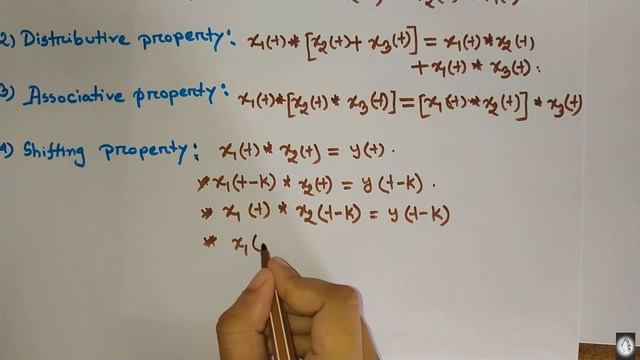 2) Distributive property: x₁(t)*[x₂(t)+ x₃(t)] = x₁(t)*x₂(t)
+ x₁(t) * x₃(t).
3) Associative property: x₁(t)*[x₂(t) * x₃(t)] = [x₁(t)*x₂(t)] * x₃(t)
4) Shifting property: x₁(t) * x₂(t) = y(t).
* x₁(t-k) * x₂(t) = y(t-k).
* x₁(t) * x₂(t-k) = y(t-k)
* x₁(